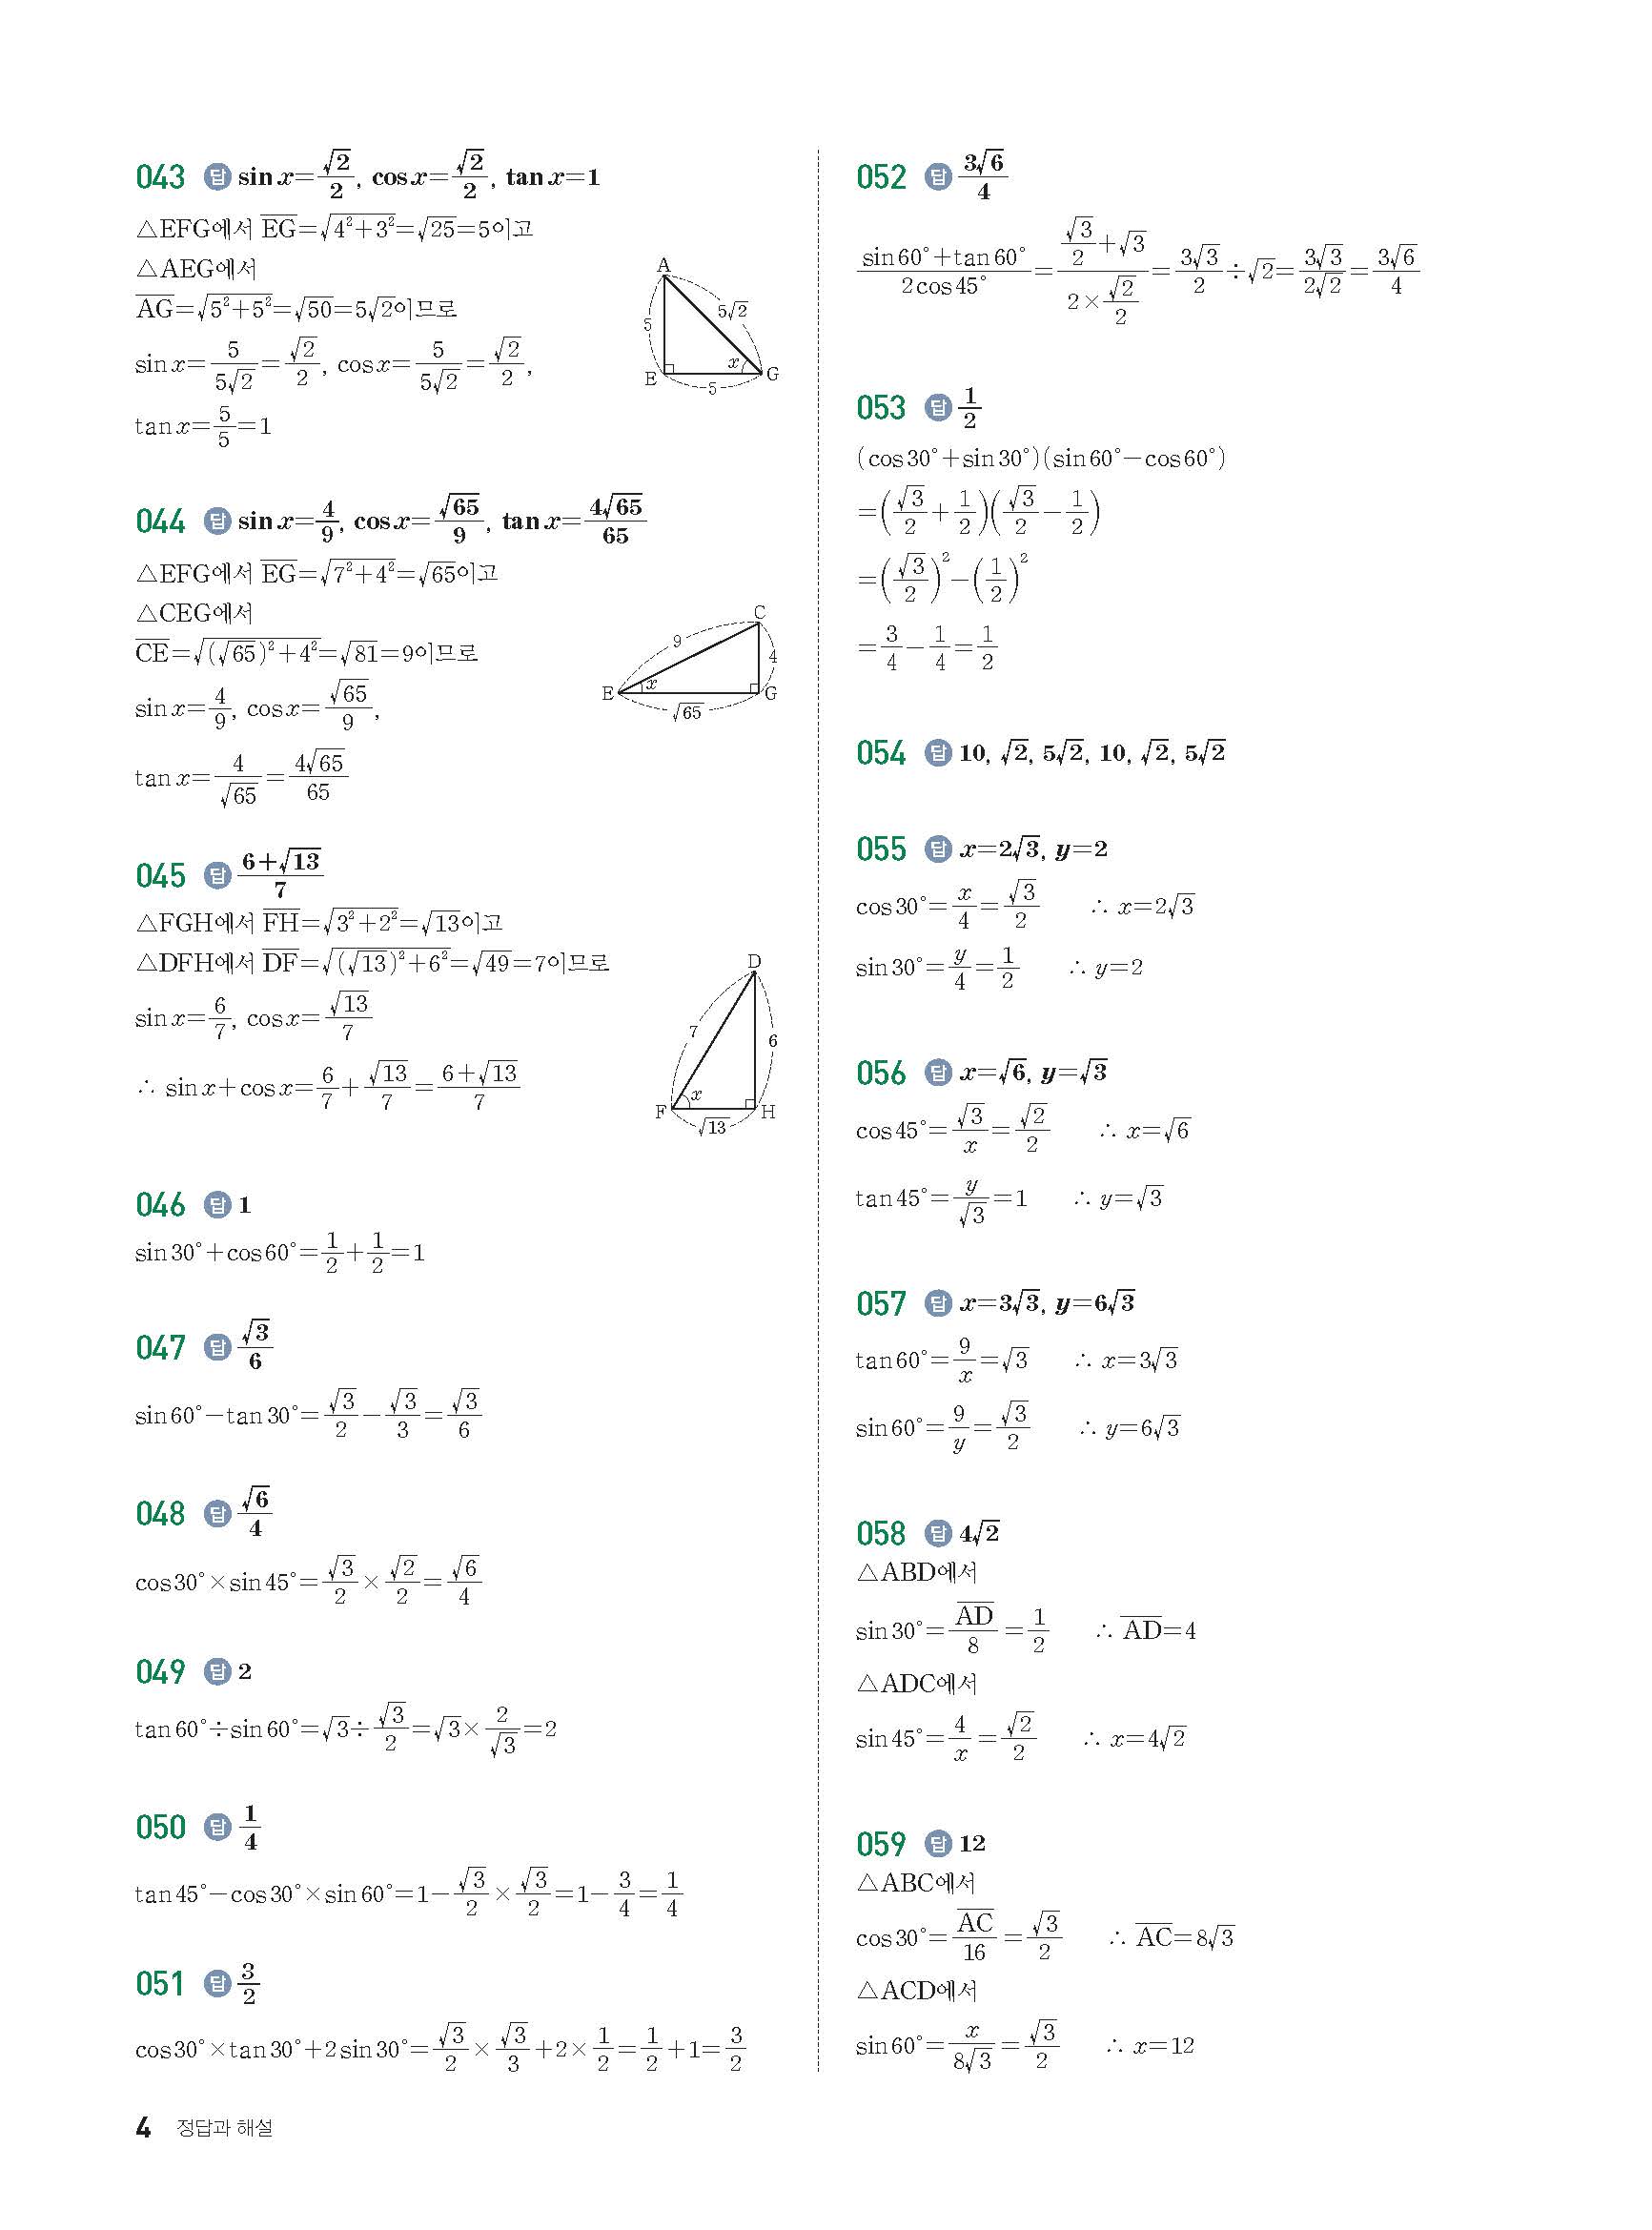 043 답 sin x=√2/2, cos x=√2/2, tan x=1
△EFG에서 EG=√(4²+3²)=√25=5이고
△AEG에서
AG=√(5²+5²)=√50=5√2이므로
sin x=5/(5√2)=√2/2, cos x=5/(5√2)=√2/2,
tan x=5/5=1
A
5√2
5
x
E
G
5
044 답 sin x=4/9, cos x=√65/9, tan x=4√65/65
△EFG에서 EG=√(7²+4²)=√65이고
△CEG에서
CE=√((√65)²+4²)=√81=9이므로
sin x=4/9, cos x=√65/9,
tan x=4/√65=4√65/65
C
9
4
x
E
G
√65
045 답 (6+√13)/7
△FGH에서 FH=√(3²+2²)=√13이고
△DFH에서 DF=√((√13)²+6²)=√49=7이므로
sin x=6/7, cos x=√13/7
∴ sin x+cos x=6/7+√13/7=(6+√13)/7
D
7
6
x
F
H
√13
046 답 1
sin 30°+cos 60°=1/2+1/2=1
047 답 √3/6
sin 60°-tan 30°=√3/2-√3/3=√3/6
048 답 √6/4
cos 30°×sin 45°=√3/2×√2/2=√6/4
049 답 2
tan 60°÷sin 60°=√3÷√3/2=√3×2/√3=2
050 답 1/4
tan 45°-cos 30°×sin 60°=1-√3/2×√3/2=1-3/4=1/4
051 답 3/2
cos 30°×tan 30°+2 sin 30°=√3/2×√3/3+2×1/2=1/2+1=3/2
052 답 3√6/4
(sin 60°+tan 60°)/(2 cos 45°)=(√3/2+√3)/(2×√2/2)=3√3/2÷√2=3√3/(2√2)=3√6/4
053 답 1/2
(cos 30°+sin 30°)(sin 60°-cos 60°)
=(√3/2+1/2)(√3/2-1/2)
=(√3/2)²-(1/2)²
=3/4-1/4=1/2
054 답 10, √2, 5√2, 10, √2, 5√2
055 답 x=2√3, y=2
cos 30°=x/4=√3/2 ∴ x=2√3
sin 30°=y/4=1/2 ∴ y=2
056 답 x=√6, y=√3
cos 45°=√3/x=√2/2 ∴ x=√6
tan 45°=y/√3=1 ∴ y=√3
057 답 x=3√3, y=6√3
tan 60°=9/x=√3 ∴ x=3√3
sin 60°=9/y=√3/2 ∴ y=6√3
058 답 4√2
△ABD에서
sin 30°=AD/8=1/2 ∴ AD=4
△ADC에서
sin 45°=4/x=√2/2 ∴ x=4√2
059 답 12
△ABC에서
cos 30°=AC/16=√3/2 ∴ AC=8√3
△ACD에서
sin 60°=x/(8√3)=√3/2 ∴ x=12
4 정답과 해설